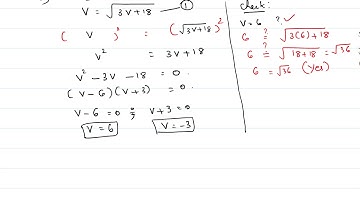 V = √3V+18 ①
( V )² = (√3V+18)²
V² = 3V+18
V² - 3V - 18 = 0
(V-6)(V+3) = 0
V-6=0 ; V+3=0
V=6 V=-3
check:
V=6 ? ✓
6 ≟ √3(6)+18
6 ≟ √18+18 = √36
6 = √36 (Yes)